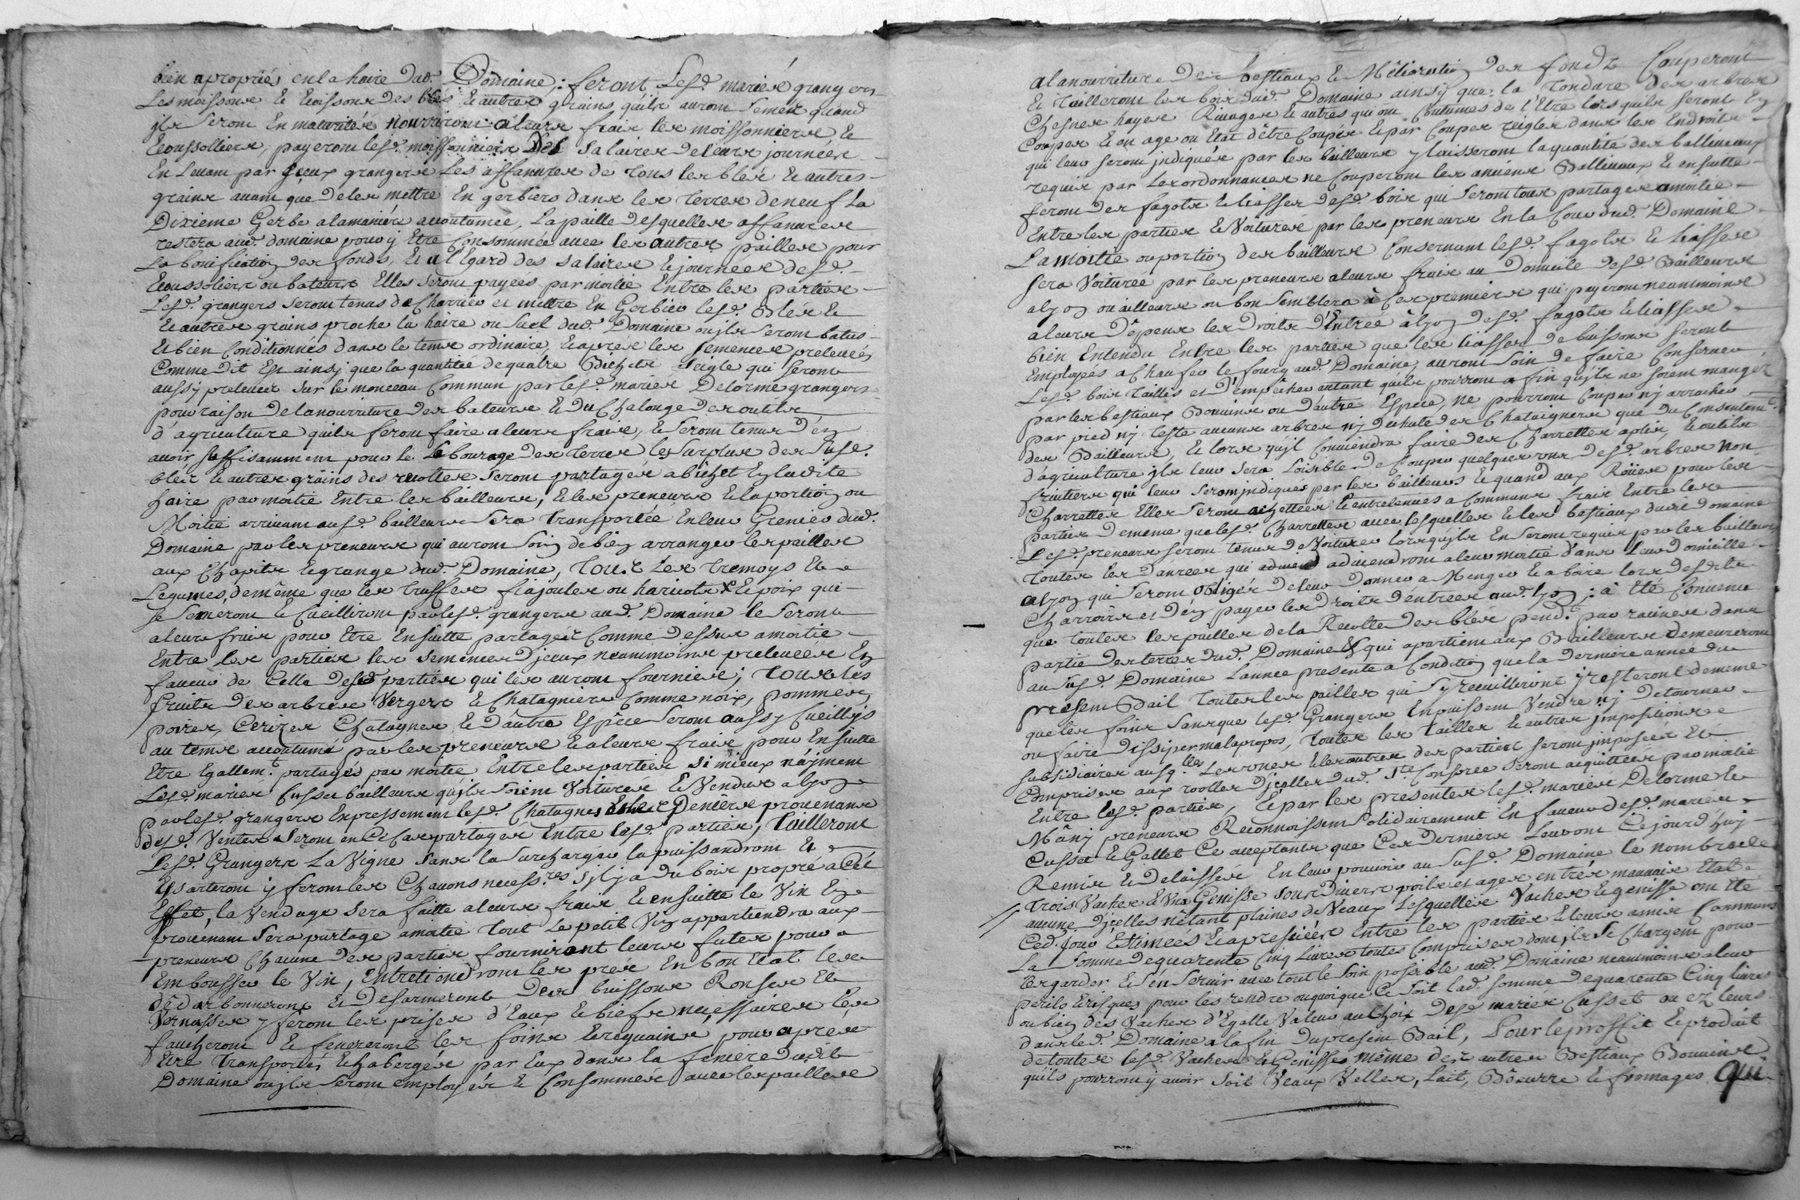 bien apropriés en la haire dud. Domaine : feront Lesd. mariés grangers
Les moissons & liaisons des blés & autres grains quils auront semés quand
ils seront En maturités nourriront a leurs frais les moissonniers &
Ecoussolliers, payeront lesd. moissonniers Des salaires de leurs journées
En Levant par yceux grangers Les affanures de tous les blés & autres
grains avant que de les mettre En gerbiers dans les terres de neuf La
Dixieme Gerbe a la maniére acoutumée, La paille desquelles affanures
restera aud. domaine pour y Etre Consommée avec les autres pailles pour
La bonification des fonds, & a l'Egard des salaires & journées desd.
Ecoussoliers ou bateurs Elles seront payées par moitié Entre les parties
Lesd. grangers seront tenus de Charrier et mettre En Gerbier lesd. Blés &
& autres grains proche la haire ou suel dud. Domaine ou ils seront batus
& bien Conditionnés dans le tems ordinaire, & apres les semences prelevées
Comme dit Est ainsy que la quantité de quatre Bichets Seigle qui seront
aussy prelevés sur le monceau Commun par lesd. mariés Delorme grangers
pour raison de la nourriture des bateurs & du Chalonge des outils
d'agriculture quils feront faire a leurs frais, & seront tenus d'En
avoir suffisamment pour le Labourage des terres le surplus des susd.
bleds & autres grains des recoltes seront partagés a bichet En ladite
haire par moitié Entre les bailleurs, & les preneurs & la portion ou
Moitié arrivant ausd. bailleurs sera transportée En leur Grenier dud.
Domaine par les preneurs qui auront soin de bien arranger les pailles
aux Chapits & grange dud. Domaine, Tous Les tremoys &
Legumes, de même que les truffes fiajoules ou haricots & pois qui
se semeront & Cueilliront par lesd. grangers aud. Domaine le seront
a leurs frais pour Etre Ensuitte partagés Comme dessus a moitié
Entre les parties les semences d'yceux neanmoins prelevées En
faveur de Celle desd. parties qui les auront fournies ; Tous les
fruits des arbres Vergers & Chatagniers Comme noix, pommes,
poires, Cerizes Chatagnes & d'autre Espece seront aussy Cueillys
au tems accoutumé par les preneurs & a leurs frais, pour Ensuitte
Etre Egallemt. partagés par moitié Entre les parties si mieux n'ayment
Lesd. mariés Cusset bailleurs quils soient Voiturés & Vendus a lyon
par lesd. grangers Expressement lesd. Chatagnes & les Deniers provenans
desd. Ventes seront En Ce Cas partagés Entre lesd. parties, Tailleront
Lesd. Grangers La Vigne sans la surcharger la puissandront &
Ysarteront y feront les Chavons necessres. s'il y a du bois propre a Cet
Effet, la vendage sera faitte a leurs frais & Ensuitte le Vin En
provenant sera partagé a moitié tout Le petit Vin appartiendra aux
preneurs Chacune des parties fourniront leurs futes pour
Embousser le Vin, Entretiendront les prés En bon Etat les
Dédarbonneront & Desarmeront Des buissons Ronses &
Vernasses y feront les prises d'Eaux & biefs necessaires les
faucheront & feneront les foins & requains pour apres
Etre transportés & habergés par Eux dans la feniere dudit
Domaine ou ils seront employés & Consommés avec les pailles
a la nourriture des bestiaux & Melioration des fonds Couperont
& Tailleront les bois dud. Domaine ainsy que la tondure des arbres
Chesnes hayes Rivages & autres qui ont Coutumes de l'Etre lors quils seront En
Coupes & en age ou Etat d'être Coupés & par Coupes reiglés dans les Endroits
qui leur seront indiqués par les bailleurs y laisseront la quantité des balliveaux
requis par Les ordonnances ne Couperont les anciens Ballivaux & ensuitte
feront des fagots & liasses desd. bois qui seront tous partagés a moitié
Entre les parties & Voiturés par les preneurs En la Cour dud. Domaine
La moitié ou portion des bailleurs Consernant lesd. fagots & liasses
sera Voiturée par les preneurs a leurs frais au Domicile desd. Bailleurs
a lyon ou ailleurs ou bon semblera à Ces premiers qui payeront neanmoins
a leurs dépens les Droits d'Entrée à lyon desd. fagots & liasses
bien Entendu Entre les parties que les liasses de buissons seront
Employés a Chaufer le four aud. Domaine, auront soin de faire Conserver
Lesd. bois taillis et d'Empêcher autant quils pourront a fin quils ne soient mangés
par les bestiaux Bouvins ou d'autre Espece, ne pourront Couper ny arracher
par pied ny teste aucuns arbres ny du hule des Chataigners que du Consentemt.
des Bailleurs, & lors qu'il Conviendra faire des Charrettes aplis, & outils
d'agriculture ils leur sera Loisible de Couper quelques uns desd. arbres non
fruitiers qui leur seront indiqués par les bailleurs & quand aux Roües pour les
Charrettes Elles seront achettées & entretenues a Communs frais Entre les
parties de meme que lesd. Charrettes avec lesquelles & les bestiaux dudit domaine
Lesd. preneurs seront tenus de Voiturer lors quils En seront requis par les bailleurs
toutes les danrées qui adviendront a leur moitié dans leur domicille
a lyon qui seront obligés de leur Donner a Manger & a boire lors desdits
Charrois et d'En payer les Droits d'entrées aud. lyon ; à été Convenu
que toutes les pailles de la Recolte des blés pend. par racines dans
partie des terres dud. Domaine & qui apartient aux Bailleurs demeureront
au susd. Domaine L'année presente a Condition que la derniere année du
present Bail toutes les pailles qui s'y recuilleront y resteront de meme
que les foins sans que lesd. Grangers En puissent Vendre ny detourner
ou faire dissiper mal apropos, toutes les tailles & autres impositions
subsidiaires ausq.lles Les uns & les autres des parties seront imposées &
Comprises aux roolles d'icelles dud. St. Consorce seront aquittées par moitié
Entre lesd. parties, & par les presentes lesd. mariés Delorme &
Mâny preneurs Reconnoissent solidairement En faveur desd. mariés
Cusset & Gallet Ce acceptants que Ces Derniers Leur ont Cejourd'huy
Remis & Delaissés En leur pouvoir au susd. Domaine le nombre de
Trois Vaches & Une Genisse sous divers poils et ages en tres mauvais Etat
aucune dicelles n'etant plaines de Veaux lesquelles Vaches & genisse ont Eté
Ced. Jour Estimées & apresiées Entre les parties & leurs amis Communs
La somme de quarente Cinq Livres toutes Comprises dont ils se Chargent pour
Les garder & s'en servir avec tout le soin possible aud. Domaine neanmoins a leur
perils & risques pour les rendre ou quoique Ce soit lad. somme de quarente Cinq livres
ou bien des Vaches d'Egalle Valeur au Choix desd. mariés Cusset ou ez leurs
dans led. Domaine a la fin du present Bail, Tout le proffit & produit
de toutes lesd. Vaches & Genisse & même des autres Bestiaux Bouvins
quils pourront y avoir soit Veaux Velles, lait, Beurre & fromages Qui